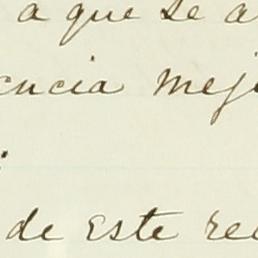 a que se a
encia mej
de este re